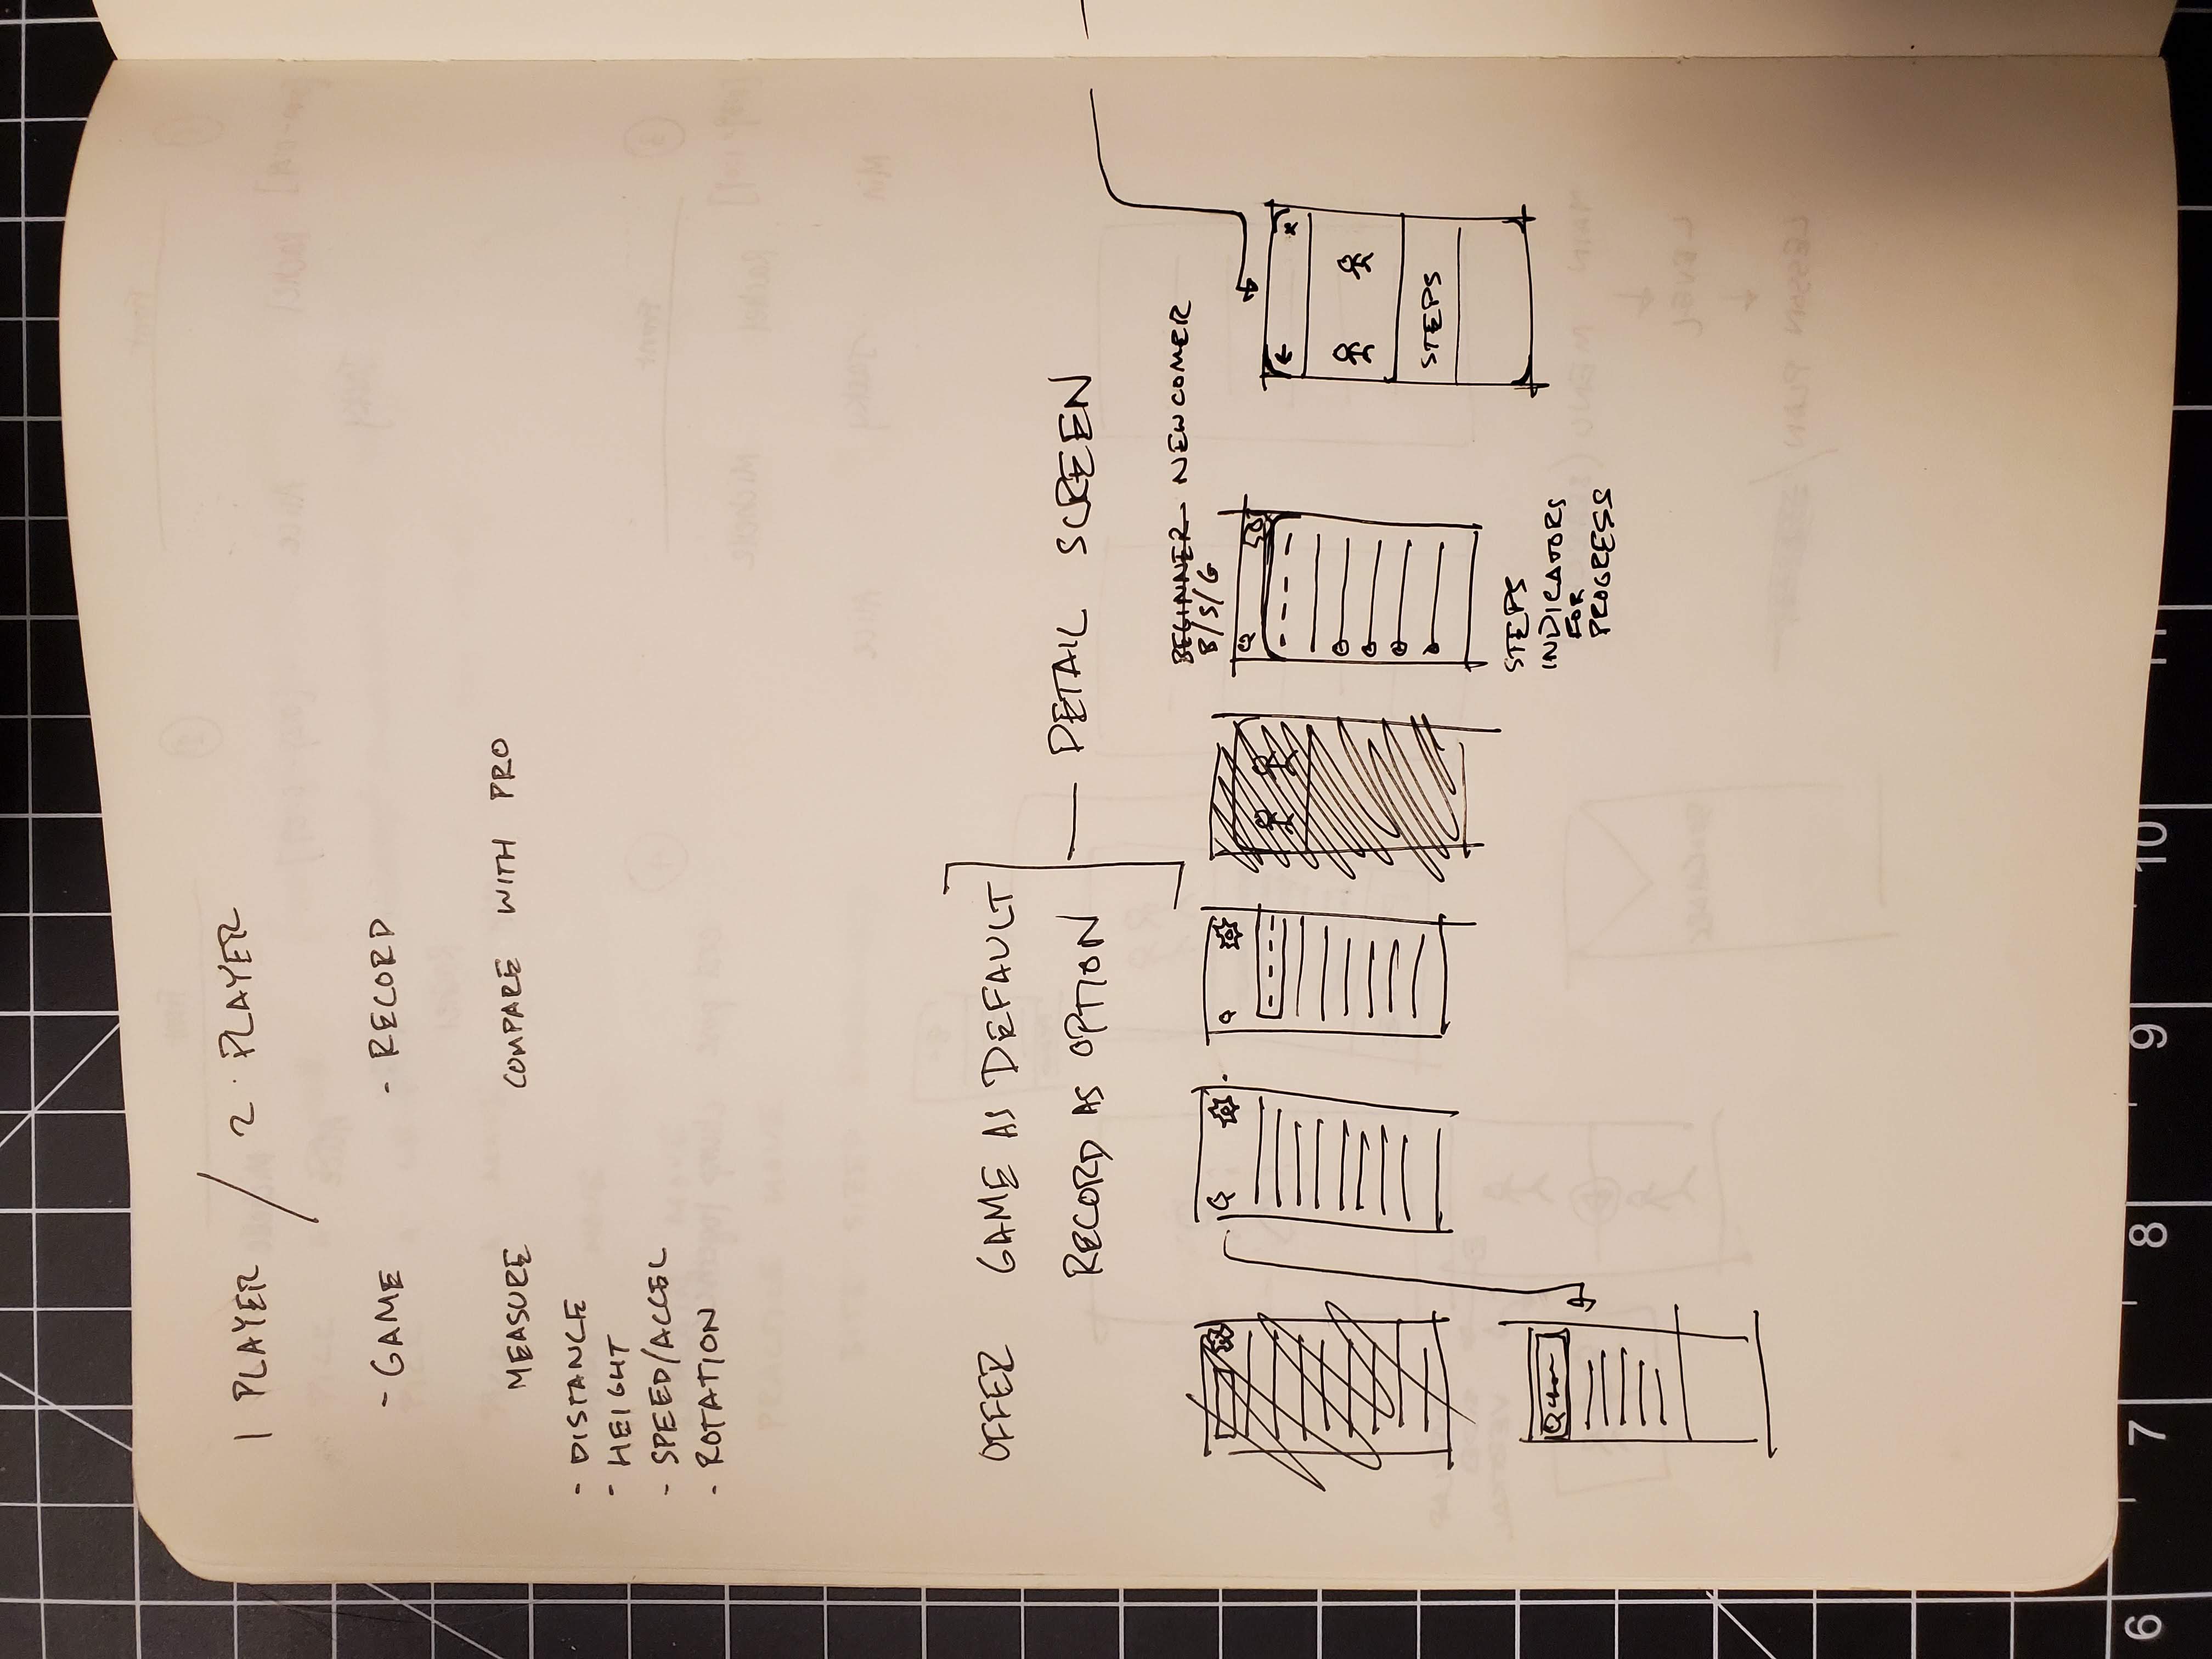 1 PLAYER / 2 PLAYER
- GAME - RECORD
MEASURE COMPARE WITH PRO
- DISTANCE
- HEIGHT
- SPEED/ACCEL
- ROTATION
OFFER GAME AS DEFAULT
RECORD AS OPTION
DETAIL SCREEN
BEGINNER NEWCOMER
B/S/G
STEPS
STEPS
INDICATORS
FOR
PROGRESS
6 7 8 9 10 11